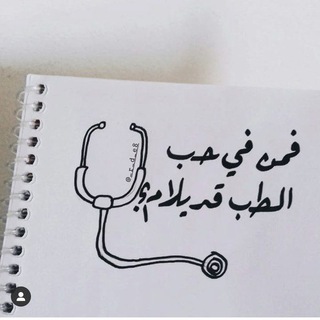 فمن في حب
الطب قد يلام؟